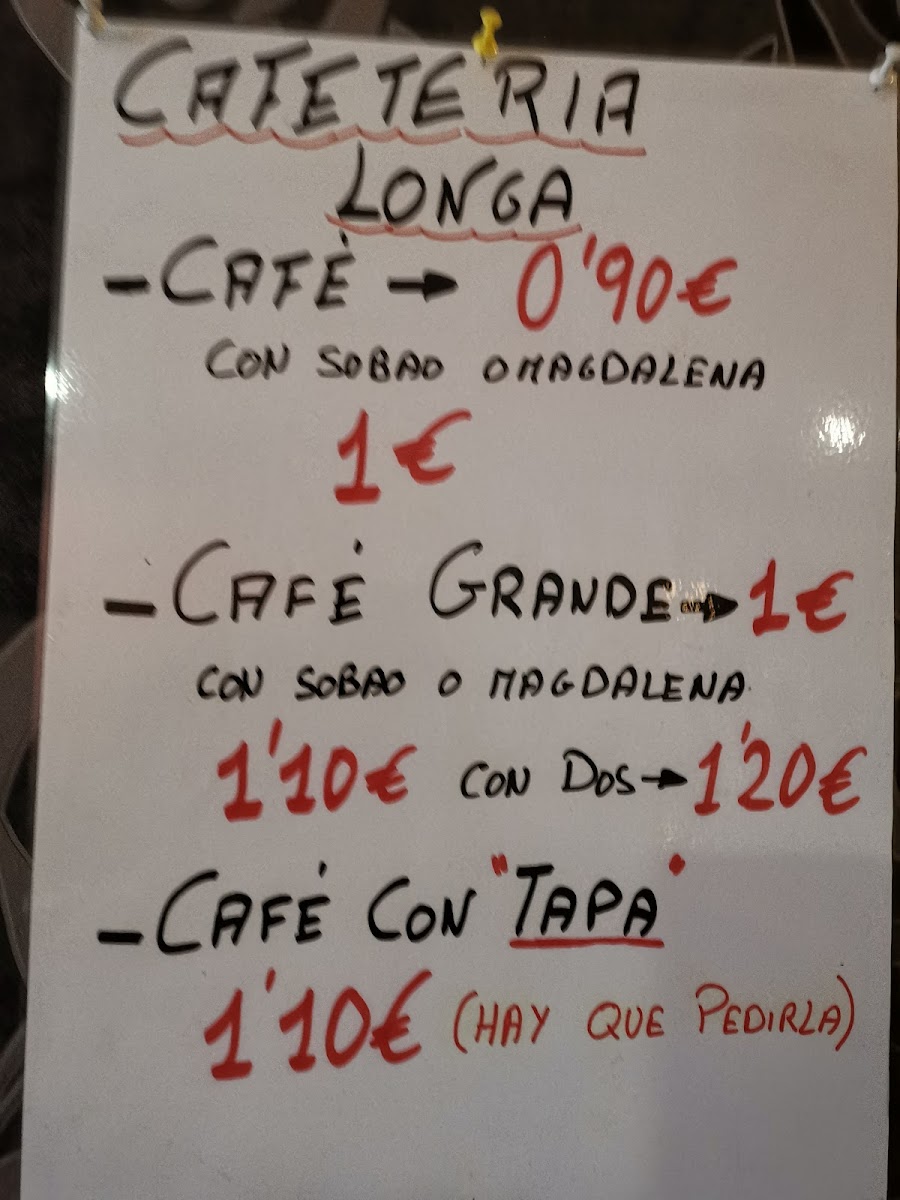 CAFETERIA
LONGA
- CAFÉ → 0'90€
CON SOBAO O MAGDALENA
1€
- CAFÉ GRANDE → 1€
CON SOBAO O MAGDALENA
1'10€ CON DOS → 1'20€
- CAFÉ CON "TAPA"
1'10€ (HAY QUE PEDIRLA)